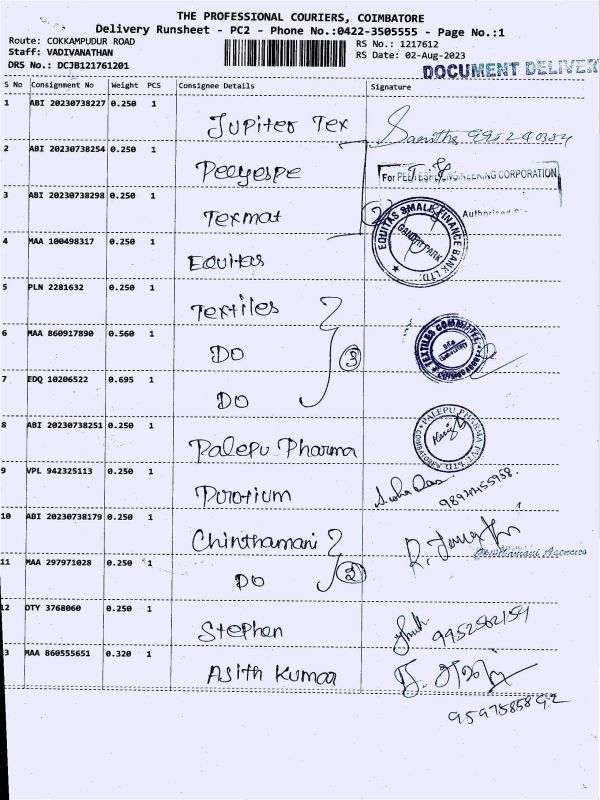 THE PROFESSIONAL COURIERS, COIMBATORE
Delivery Runsheet - PC2 - Phone No.:0422-3505555 - Page No.:1
Route: COKKAMPUDUR ROAD
Staff: VADIVANATHAN
DRS No.: DCJB121761201
RS No.: 1217612
RS Date: 02-Aug-2023
DOCUMENT DELIVER
S No Consignment No Weight PCS Consignee Details Signature
1 ABI 20230738227 0.250 1 Jupiter Tex
2 ABI 20230738254 0.250 1 Peeyespe
For PEEYESPE ENGINEERING CORPORATION
3 ABI 20230738298 0.250 1 Texmat
Authorised
4 MAA 100498317 0.250 1 Equitas
EQUITAS SMALL FINANCE BANK LTD.
GANDHI PARK
5 PLN 2281632 0.250 1 Textiles
6 MAA 860917890 0.560 1 DO 3
TEXTILES COMMITTEE
7 EDQ 10206522 0.695 1 DO
8 ABI 20230738251 0.250 1 Palepu Pharma
PALEPU PHARMA PVT LTD
COIMBATORE
9 VPL 942325113 0.250 1
10 ABI 20230738179 0.250 1 Chinthamani
Chinthamani Agencies
11 MAA 297971028 0.250 1 DO 2
12 DTY 3768060 0.250 1 Stephen 9952562154
3 MAA 860555651 0.320 1 Asith Kumar
9597585892